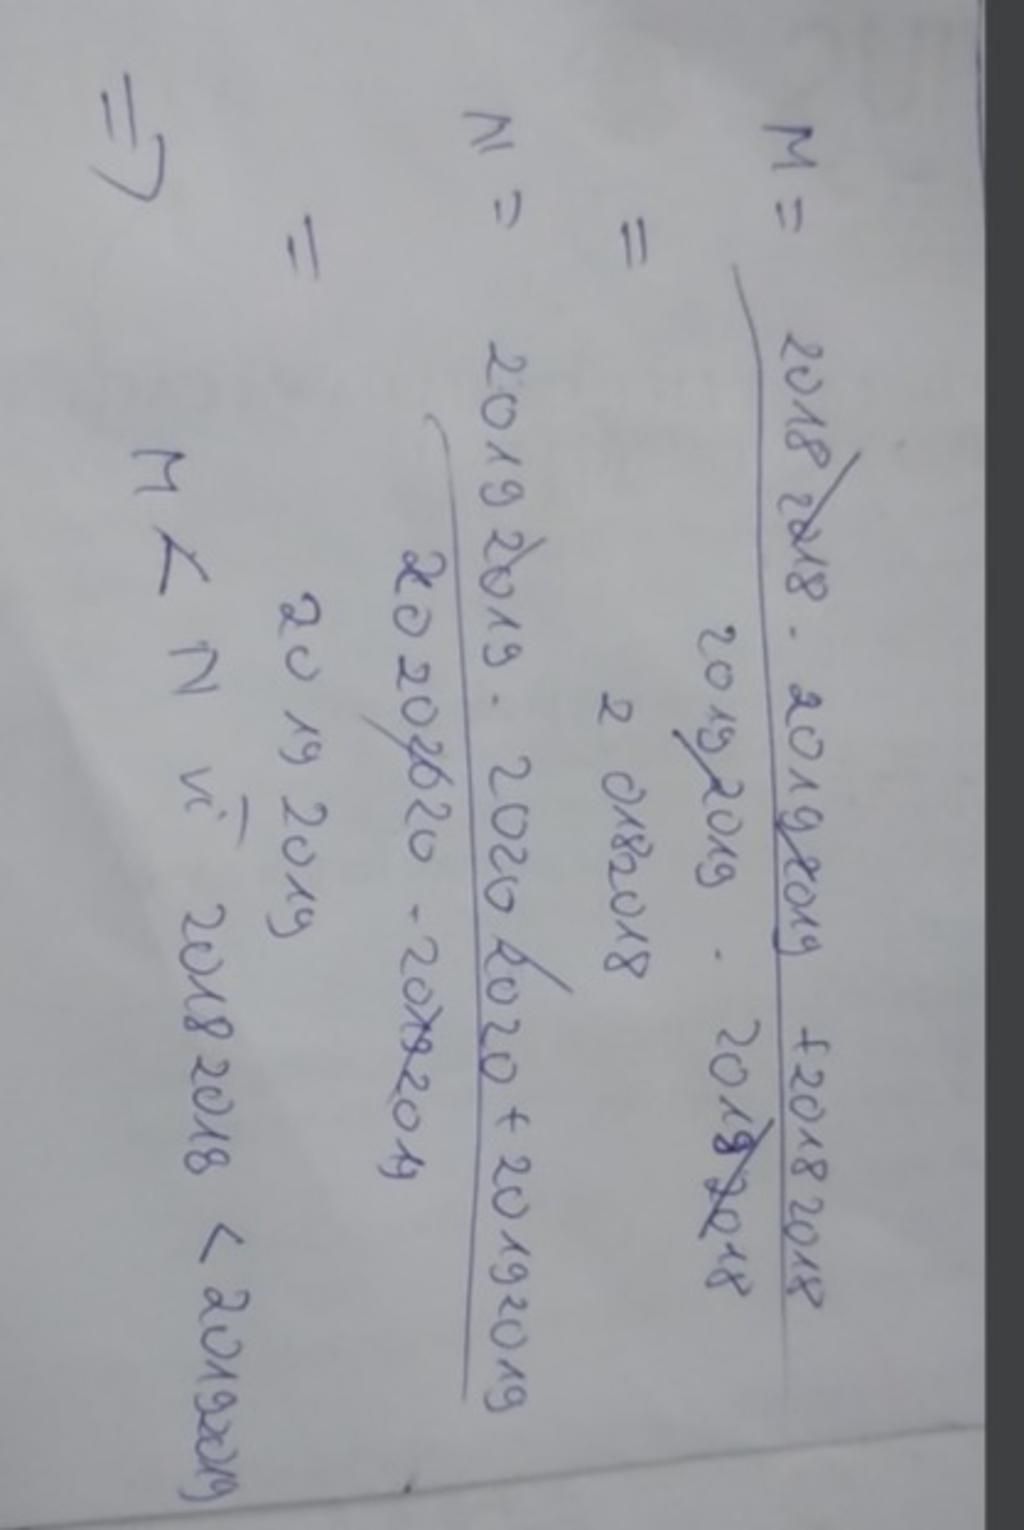 M = 20182018 . 20192019 + 20182018
20192019 . 20182018
= 2 0182018
N = 20192019 . 20202020 + 20192019
20202020 - 20192019
= 2019 2019
=> M < N vì 20182018 < 20192019